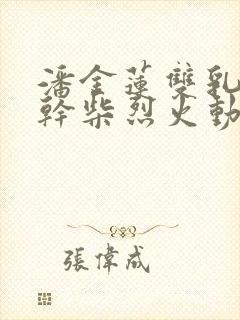 潘金蓮雙乳
幹柴烈火動
張偉成